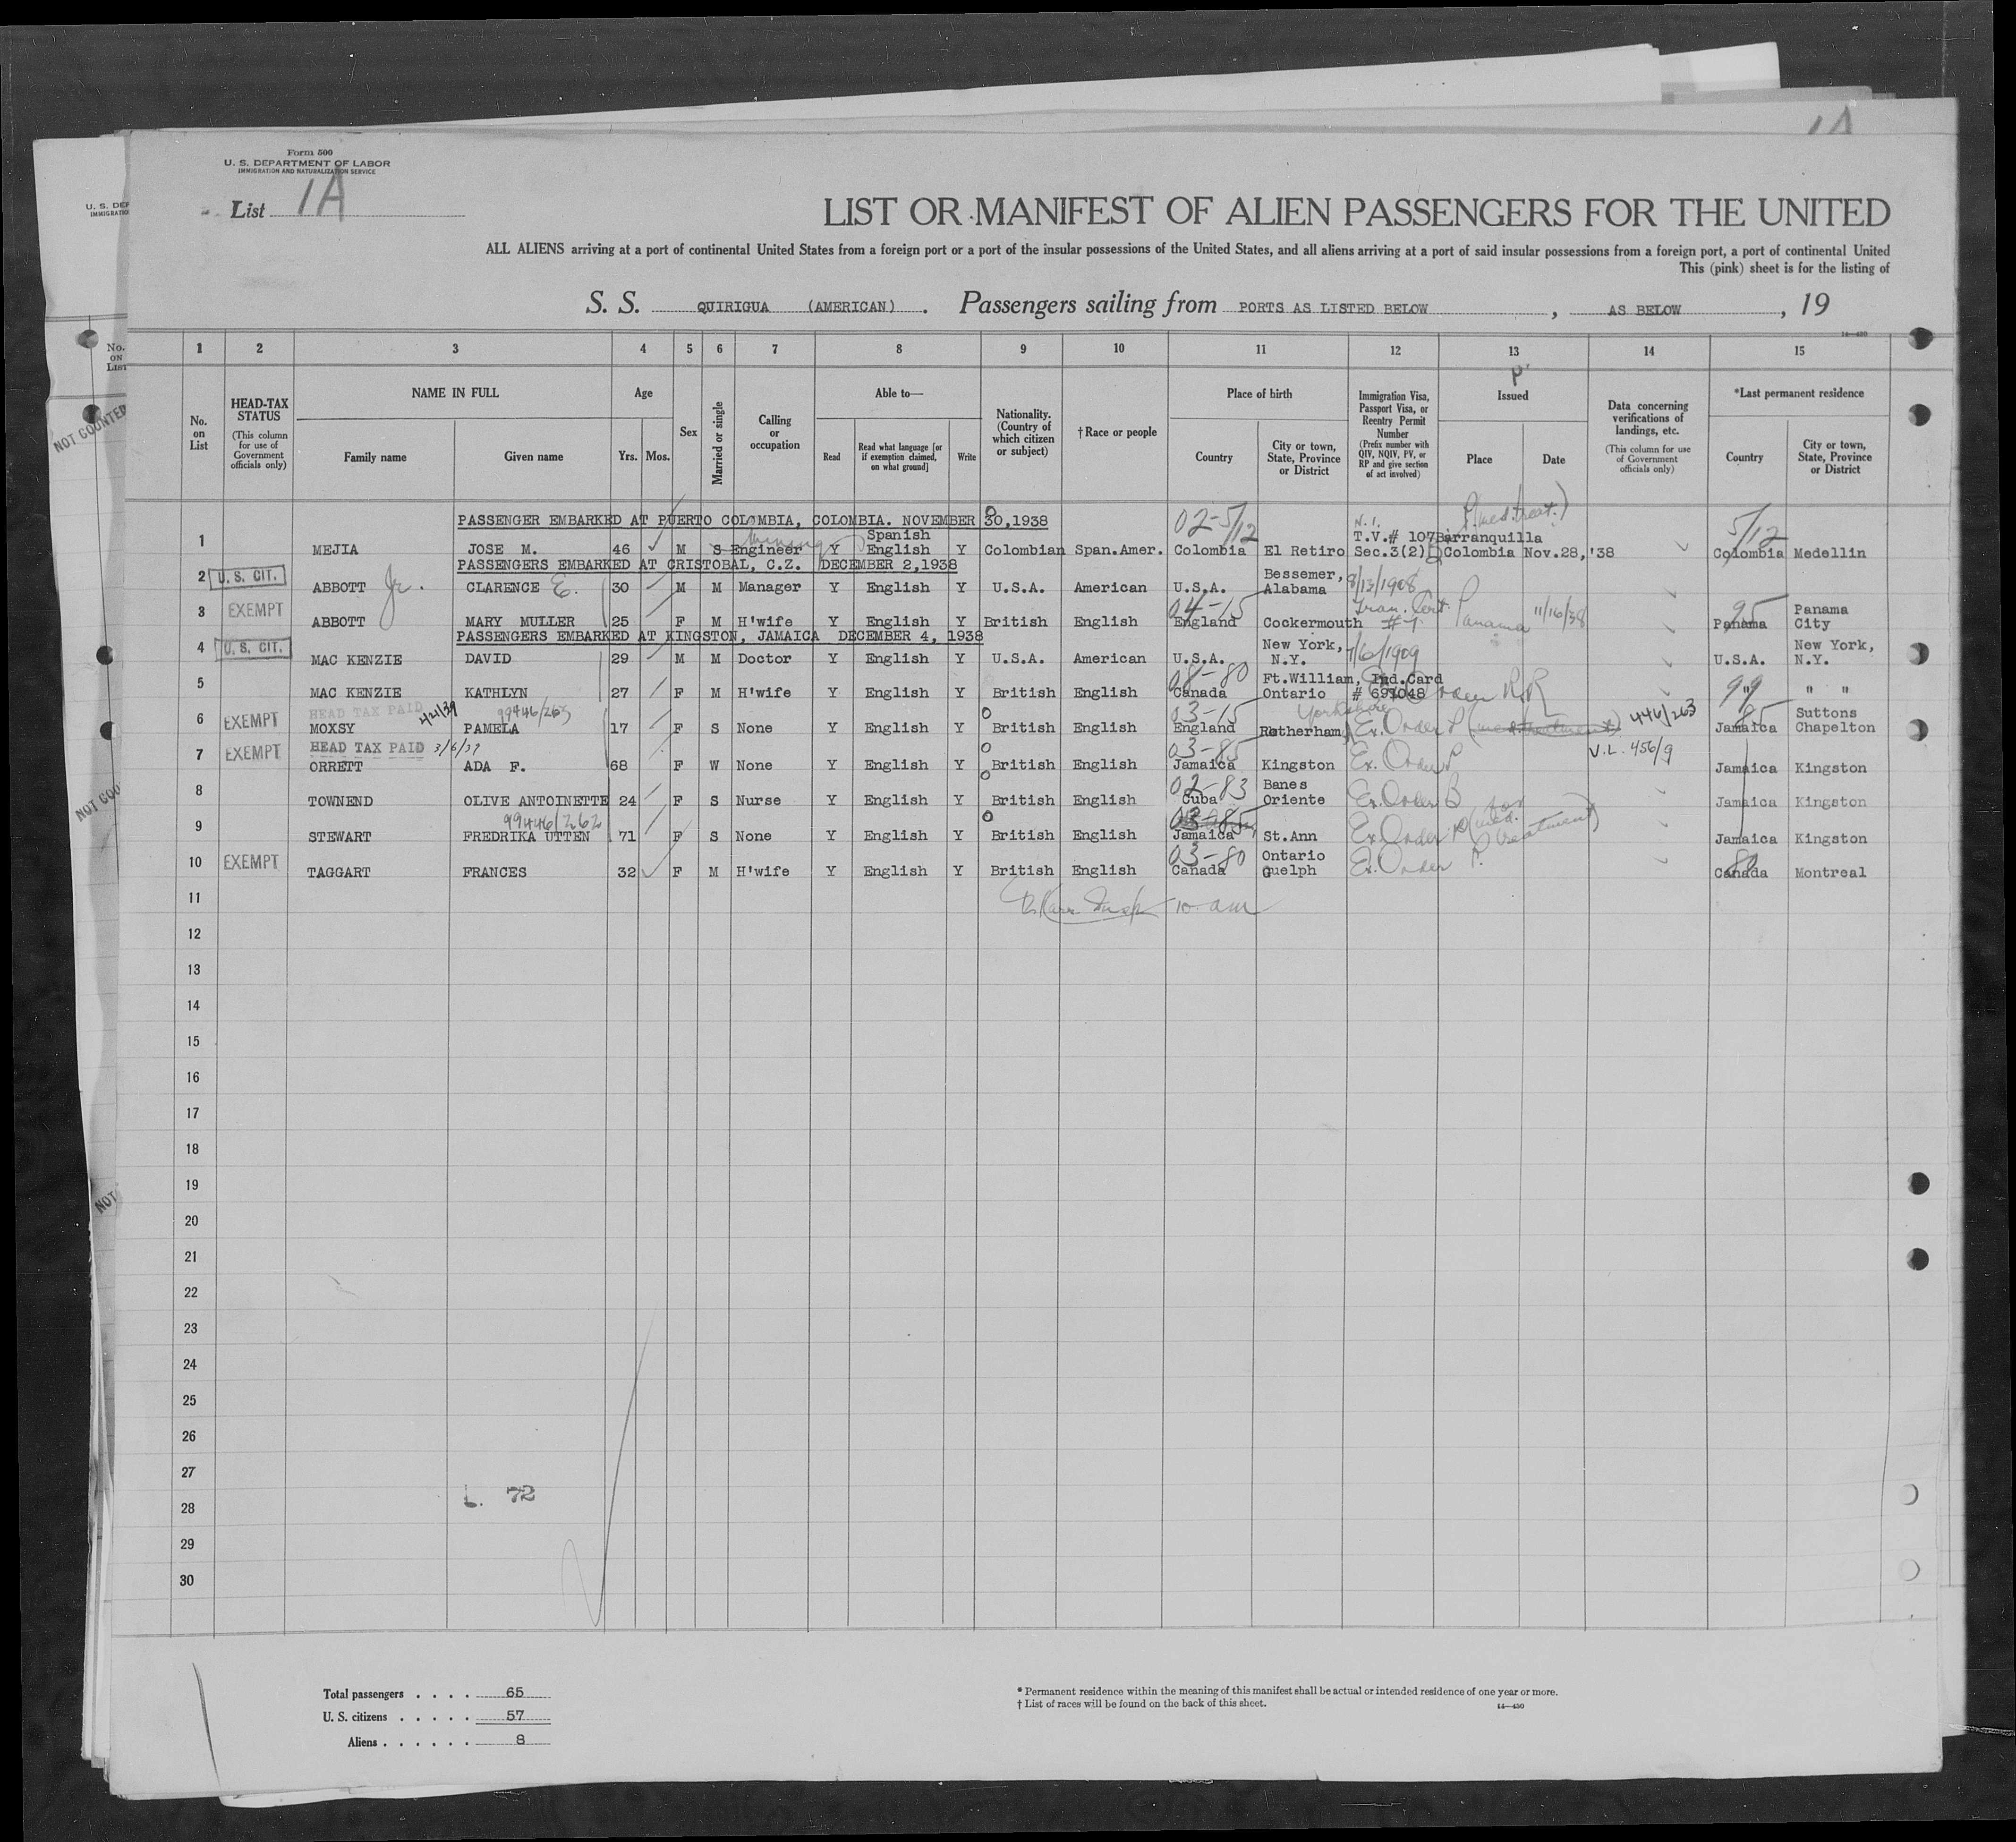 Form 500
U. S. DEPARTMENT OF LABOR
IMMIGRATION AND NATURALIZATION SERVICE
List 1A
LIST OR MANIFEST OF ALIEN PASSENGERS FOR THE UNITED
ALL ALIENS arriving at a port of continental United States from a foreign port or a port of the insular possessions of the United States, and all aliens arriving at a port of said insular possessions from a foreign port, a port of continental United
This (pink) sheet is for the listing of
S. S. QUIRIGUA (AMERICAN). Passengers sailing from PORTS AS LISTED BELOW, AS BELOW, 19
14—430
1 2 3 4 5 6 7 8 9 10 11 12 13 14 15
No. on List
HEAD-TAX STATUS (This column for use of Government officials only)
NAME IN FULL
Family name Given name
Age
Yrs. Mos.
Sex
Married or single
Calling or occupation
Able to—
Read
Read what language [or if exemption claimed, on what ground]
Write
Nationality. (Country of which citizen or subject)
†Race or people
Place of birth
Country
City or town, State, Province or District
Immigration Visa, Passport Visa, or Reentry Permit Number (Prefix number with QIV, NQIV, PV, or RP and give section of act involved)
Issued
Place Date
Data concerning verifications of landings, etc. (This column for use of Government officials only)
*Last permanent residence
Country
City or town, State, Province or District
PASSENGER EMBARKED AT PUERTO COLOMBIA, COLOMBIA. NOVEMBER 30,1938
02-5/12 N.I. P(med.treat.) 5/12
Mining Spanish T.V.# 107 Barranquilla
1 MEJIA JOSE M. 46 M S Engineer Y English Y Colombian Span.Amer. Colombia El Retiro Sec.3(2) Colombia Nov.28,'38 Colombia Medellin
PASSENGERS EMBARKED AT CRISTOBAL, C.Z. DECEMBER 2,1938
2 U. S. CIT. ABBOTT Jr. CLARENCE E. 30 M M Manager Y English Y U.S.A. American U.S.A. Bessemer, Alabama 8/13/1908
04-15 Tran. Cert. 95 Panama
3 EXEMPT ABBOTT MARY MULLER 25 F M H'wife Y English Y British English England Cockermouth #7 Panama 11/16/38 Panama City
PASSENGERS EMBARKED AT KINGSTON, JAMAICA DECEMBER 4, 1938
4 U. S. CIT. MAC KENZIE DAVID 29 M M Doctor Y English Y U.S.A. American U.S.A. New York, N.Y. 7/6/1909 U.S.A. New York, N.Y.
08-80 Ft.William, Ind.Card 99
5 MAC KENZIE KATHLYN 27 F M H'wife Y English Y British English Canada Ontario # 697048 Ex. Order RR " " "
HEAD TAX PAID 99446/263 03-15 Yorkshire 446/263 85 Suttons
6 EXEMPT MOXSY PAMELA 17 F S None Y English Y British English England Rotherham Ex. Order P Jamaica Chapelton
HEAD TAX PAID 3/6/39 03-85 V.L. 456/9
7 EXEMPT ORRETT ADA F. 68 F W None Y English Y British English Jamaica Kingston Ex. Order P Jamaica Kingston
02-83 Banes
8 TOWNEND OLIVE ANTOINETTE 24 F S Nurse Y English Y British English Cuba Oriente Ex. Order B Jamaica Kingston
99446/262 03-85 for
9 STEWART FREDRIKA UTTEN 71 F S None Y English Y British English Jamaica St.Ann Ex. Order P (med. treatment) Jamaica Kingston
03-80 Ontario 80
10 EXEMPT TAGGART FRANCES 32 F M H'wife Y English Y British English Canada Guelph Ex. Order P. Canada Montreal
11 10 am
12
13
14
15
16
17
18
19
20
21
22
23
24
25
26
27
L. 72
28
29
30
Total passengers . . . . 65
U. S. citizens . . . . . 57
Aliens . . . . . . 8
* Permanent residence within the meaning of this manifest shall be actual or intended residence of one year or more.
† List of races will be found on the back of this sheet.
14—430
U. S. DEP
IMMIGRATIO
No. on List
NOT COUNTED
NOT COU
NOT
1A